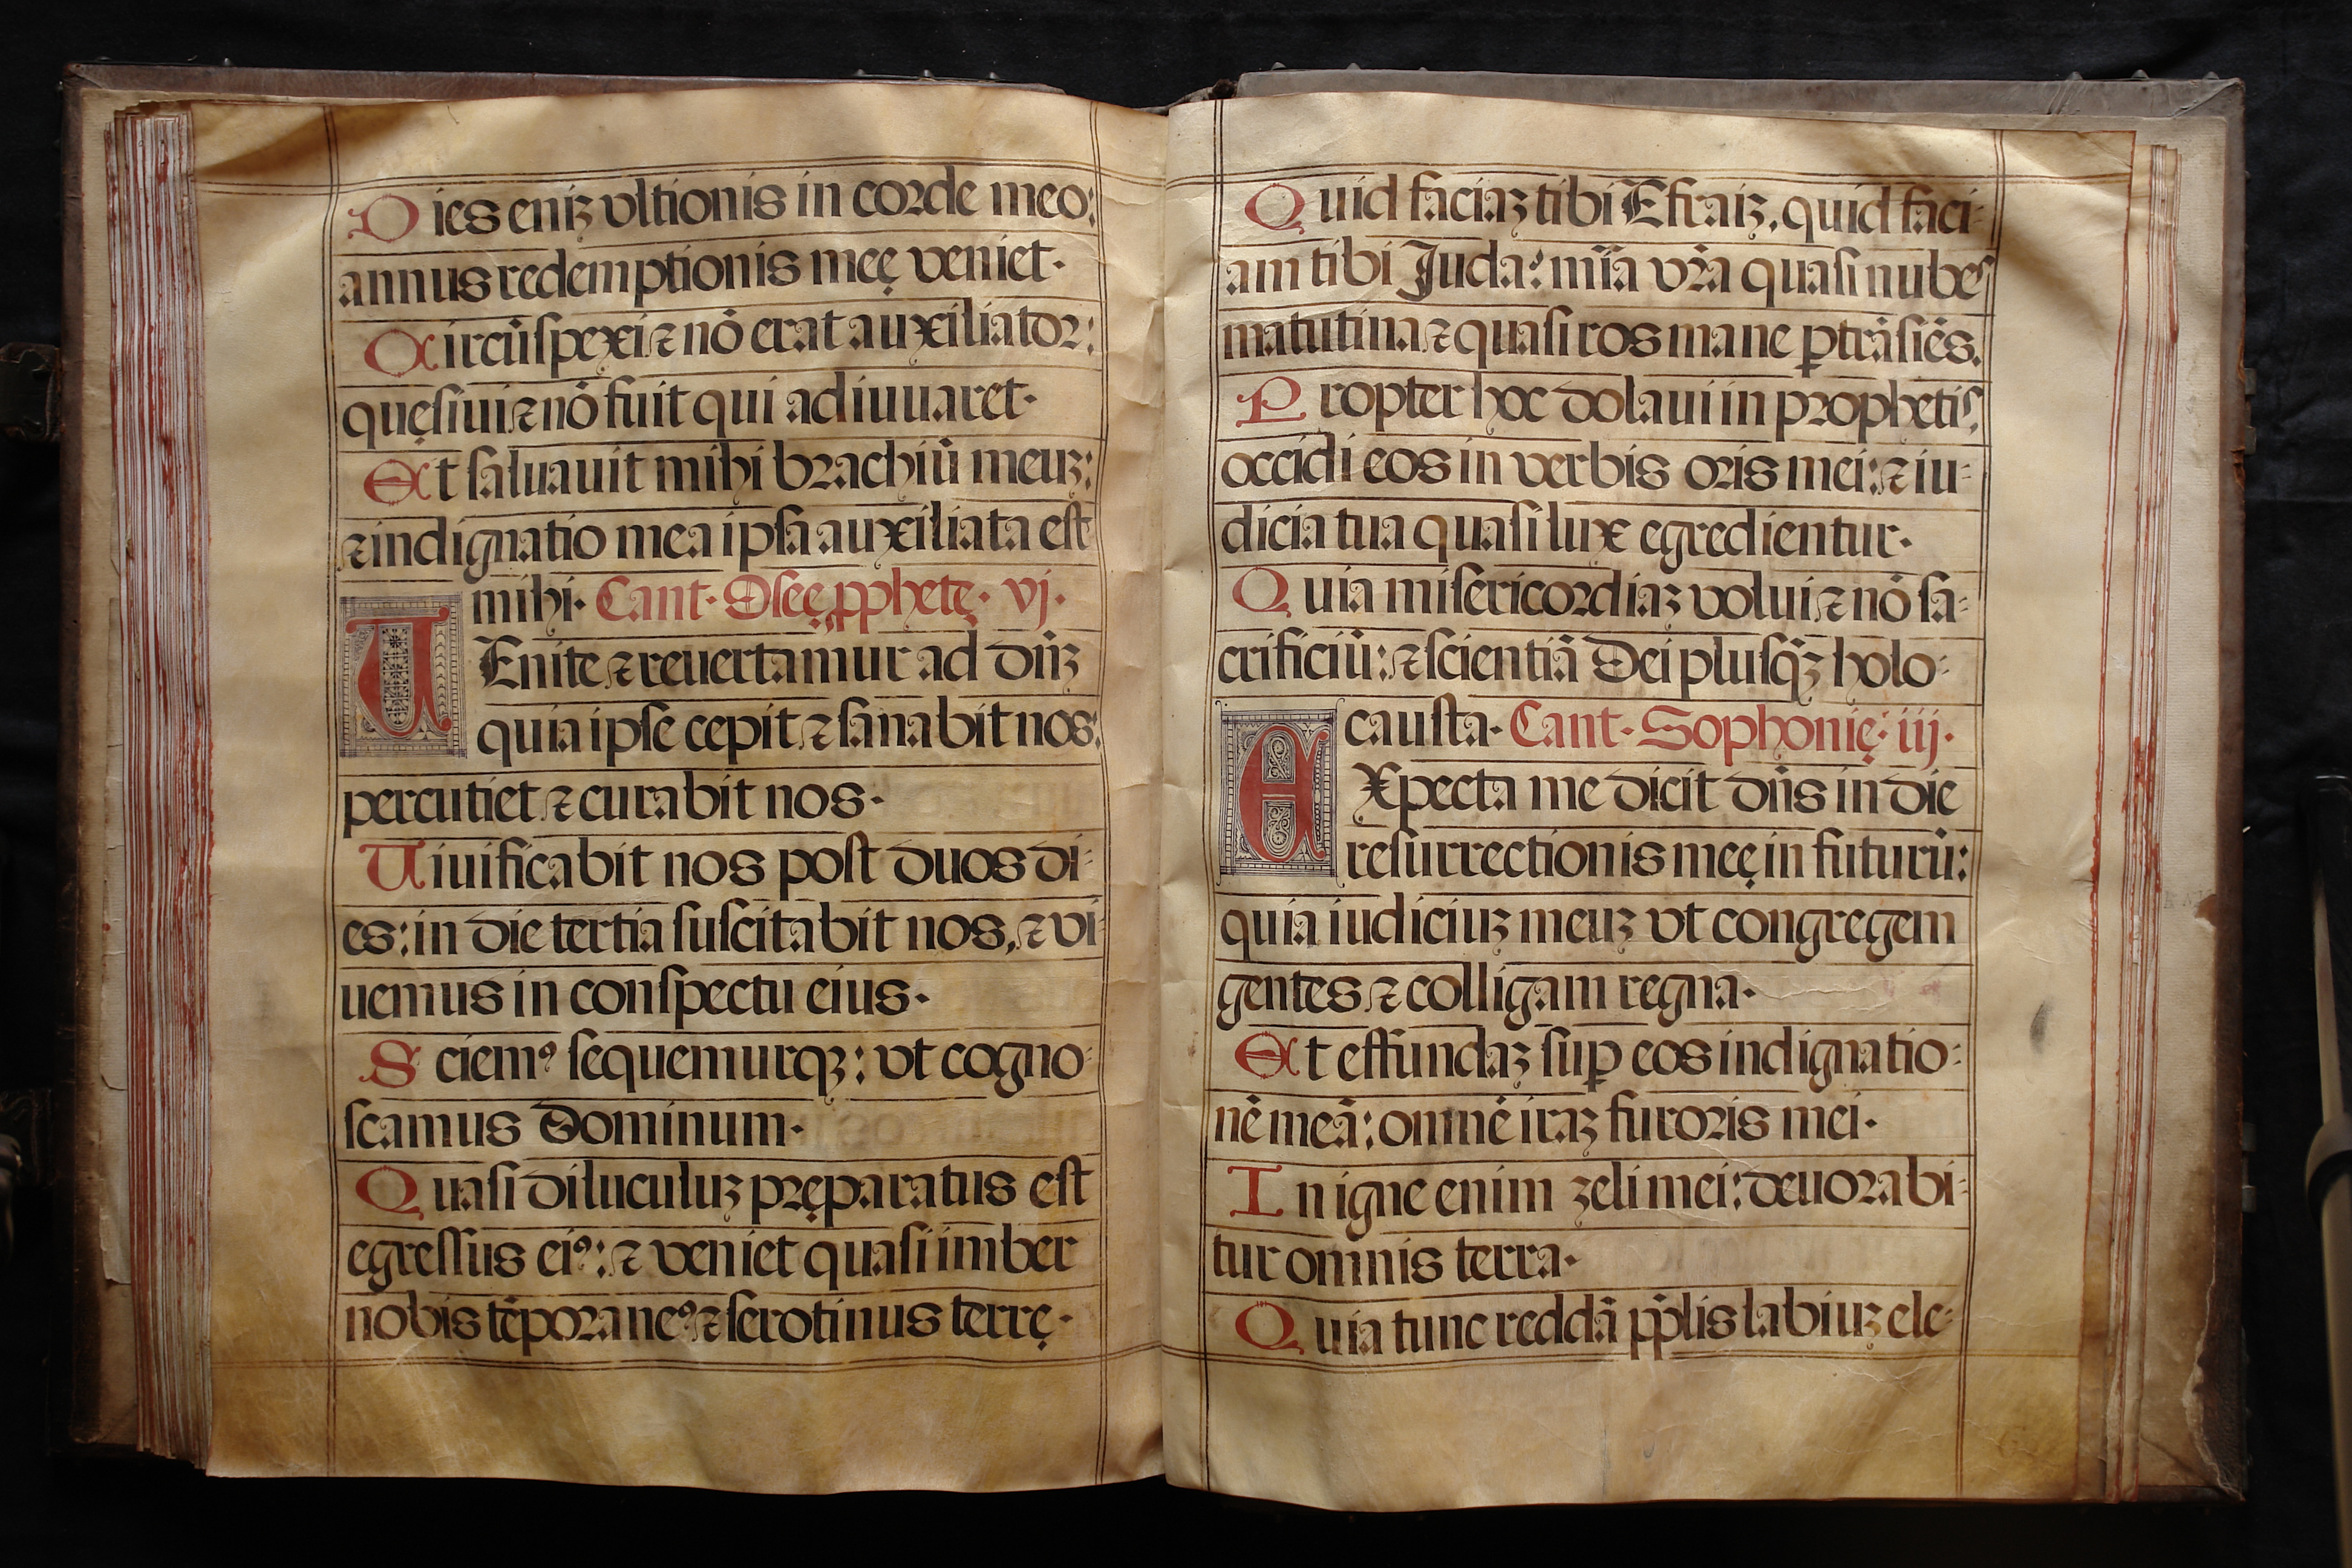 Dies eniꝫ vltionis in corde meo:
annus redemptionis meę veniet·
Circūſpexi ⁊ nō erat auxiliator:
quęſiui ⁊ nō fuit qui adiuuaret·
Et ſaluauit mihi brachiū meuꝫ:
⁊ indignatio mea ipſa auxiliata eſt
mihi· Cant· Oſeę ꝓphetę· vj·
VEnite ⁊ reuertamur ad dn̄ꝫ
quia ipſe cepit ⁊ ſanabit nos:
percutiet ⁊ curabit nos·
Viuificabit nos poſt duos di-
es: in die tertia ſuſcitabit nos, ⁊ vi-
uemus in conſpectu eius·
Sciemꝰ ſequemurqꝫ: vt cogno-
ſcamus Dominum·
Quaſi diluculuꝫ pręparatus eſt
egreſſus eiꝰ: ⁊ veniet quaſi imber
nobis tēporaneꝰ ⁊ ſerotinus terrę·
Quid faciaꝫ tibi Efraiꝫ, quid faci-
am tibi Juda: mīa vr̄a quaſi nubeſ
matutina ⁊ quaſi ros mane ꝑtrāſiēs.
Propter hoc dolaui in prophetiſ,
occidi eos in verbis oris mei: ⁊ iu-
dicia tua quaſi lux egredientur·
Quia miſericordiaꝫ volui ⁊ nō ſa-
crificiū: ⁊ ſcientiā Dei pluſq̄ꝫ holo-
cauſta· Cant· Sophonię· iij·
EXpecta me dicit dn̄s in die
reſurrectionis meę in futurū:
quia iudiciuꝫ meuꝫ vt congregem
gentes ⁊ colligam regna·
Et effundaꝫ ſuꝑ eos indignatio-
nē meā: omnē iraꝫ furoris mei·
In igne enim zeli mei: deuorabi-
tur omnis terra·
Quia tunc reddā pp̄lis labiuꝫ ele-